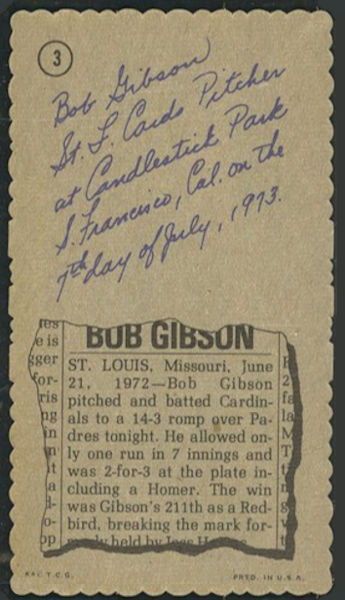 3
Bob Gibson
St. L. Cards Pitcher
at Candlestick Park
S. Francisco, Cal. on the
7th day of July, 1973.
BOB GIBSON
ST. LOUIS, Missouri, June
21, 1972—Bob Gibson
pitched and batted Cardin-
als to a 14-3 romp over Pa-
dres tonight. He allowed on-
ly one run in 7 innings and
was 2-for-3 at the plate in-
cluding a Homer. The win
was Gibson's 211th as a Red-
bird, breaking the mark for-
held by
T.C.G.
PRTD. IN U.S.A.